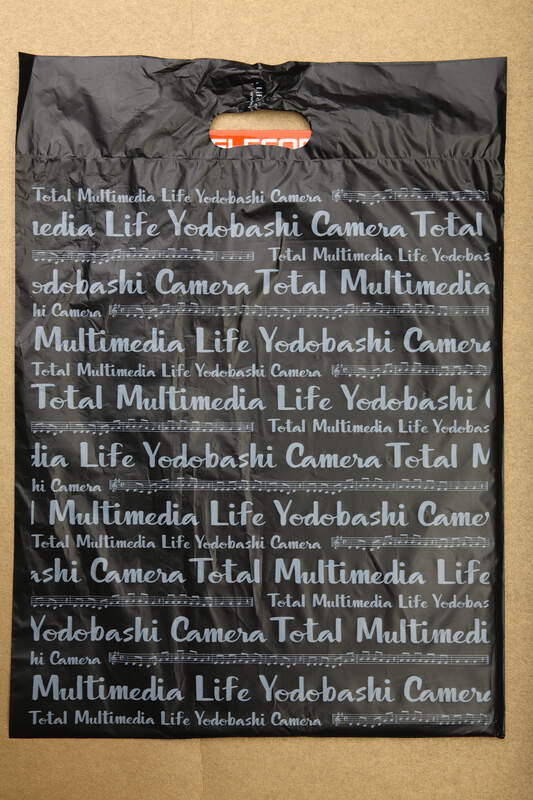 ELECOM
Total Multimedia Life Yodobashi Camera
media Life Yodobashi Camera Total
Total Multimedia Life Yodobas
odobashi Camera Total Multimedia
hi Camera
Multimedia Life Yodobashi Camera
Total Multimedia Life Yodobashi Camera
Total Multimedia Life Yodobashi
Total Multimedia Life Yodobas
dia Life Yodobashi Camera Total M
hi Camera
l Multimedia Life Yodobashi Came
Total Multimedia Life Yodobashi Camera
ashi Camera Total Multimedia Life
Total Multimedia Life Yodobas
Yodobashi Camera Total Multimedi
hi Camera
Multimedia Life Yodobashi Camera
Total Multimedia Life Yodobashi Camera